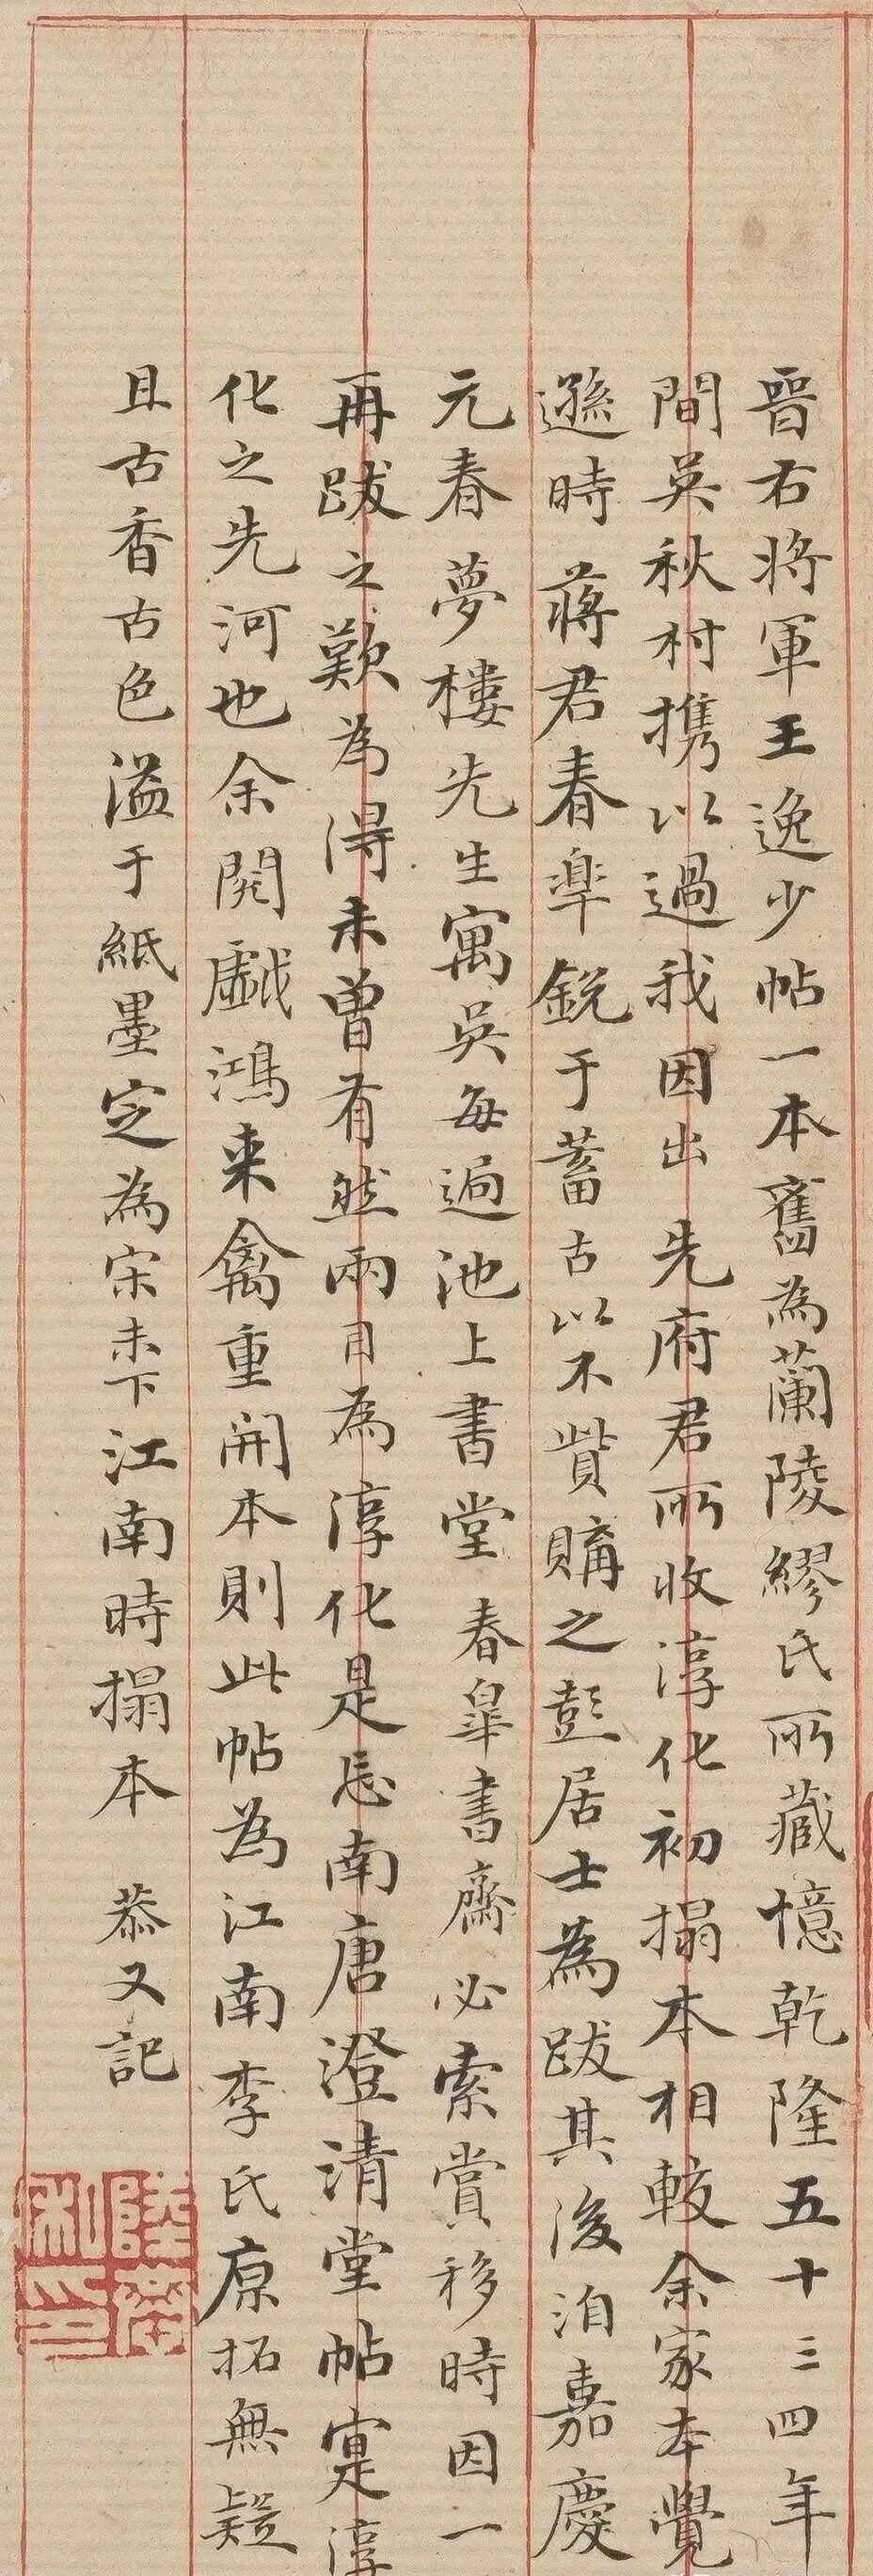 晉右將軍王逸少帖一本舊為蘭陵繆氏所藏憶乾隆五十三四年
間吳秋村攜以過我因出先府君所收淳化初搨本相較余家本覺
遜時蔣君春皐銳于蓄古以不貲購之彭居士為跋其後洎嘉慶
元春夢樓先生寓吳每過池上書堂春皐書齋必索賞移時因一
再跋之歎為得未曾有然兩目為淳化是忘南唐澄清堂帖寔淳
化之先河也余閱戲鴻來禽重開本則此帖為江南李氏原拓無疑
且古香古色溢于紙墨定為宋未下江南時搨本 恭又記